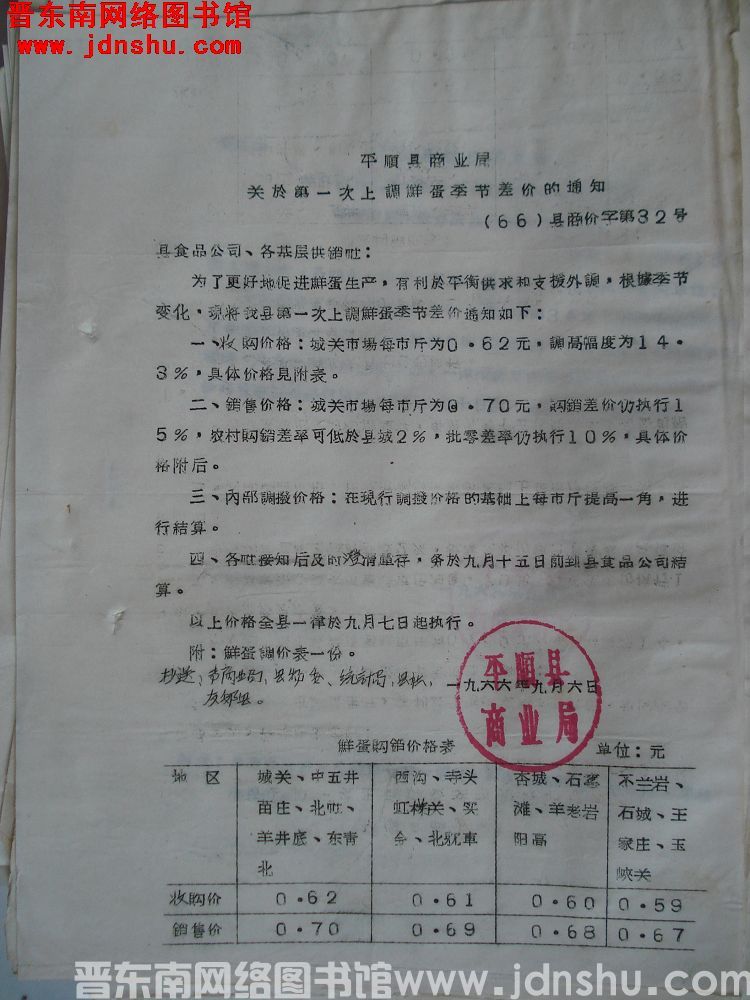 晋东南网络图书馆
www.jdnshu.com
平順县商业局
关於第一次上調鮮蛋季节差价的通知
(66)县商价字第32号
县食品公司、各基层供銷社：
为了更好地促进鮮蛋生产，有利於平衡供求和支援外調，根據季节
变化，現将我县第一次上調鮮蛋季节差价通知如下：
一、收购价格：城关市場每市斤为0.62元，調高幅度为14.
3%，具体价格見附表。
二、銷售价格：城关市場每市斤为0.70元，购銷差价仍执行1
5%，农村购銷差率可低於县城2%，批零差率仍执行10%，具体价
格附后。
三、內部調撥价格：在現行調撥价格的基础上每市斤提高一角，进
行結算。
四、各社接知后及时澄清庫存，务於九月十五日前到县食品公司結
算。
以上价格全县一律於九月七日起执行。
附：鮮蛋調价表一份。
抄送：商业局、县、统計局、县社、
一九六六年九月六日
平順县
商业局
鮮蛋购銷价格表 单位：元
地区 城关、中五井 西沟、寺头 杏城、石 不兰岩、
苗庄、北社、 虹梯关、实 滩、羊老岩 石城、王
羊井底、东青 会、北躭車 阳高 家庄、玉
北 峽关
收购价 0.62 0.61 0.60 0.59
銷售价 0.70 0.69 0.68 0.67
晋东南网络图书馆www.jdnshu.com